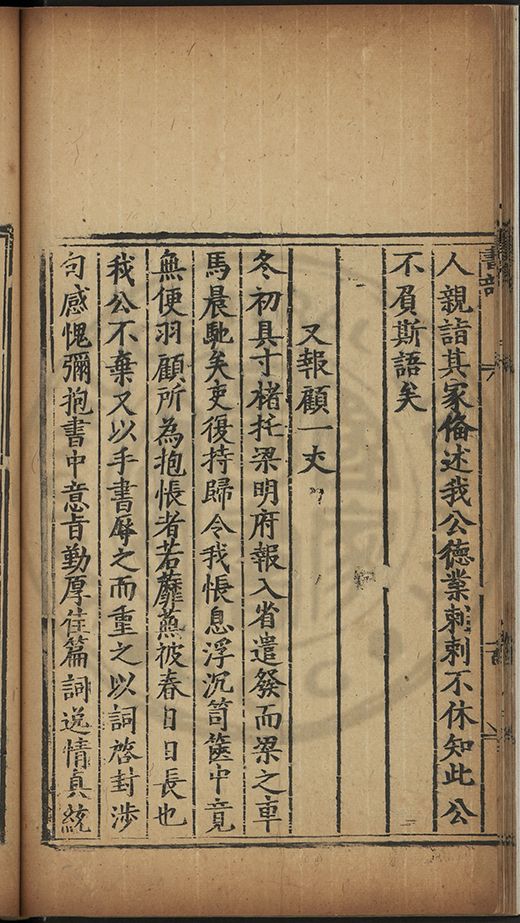 人親詣其家備述我公德業刺刺不休知此公
不負斯語矣
又報顧一丈
冬初具寸楮托梁明府報入省遣發而梁之車
馬晨馳矣吏復持歸令我悵息浮沉笥篋中竟
無便羽顧所為抱悵者若蘼蕪被春日日長也
我公不棄又以手書辱之而重之以詞啓封涉
句感愧彌抱書中意旨勤厚佳篇詞逸情真統